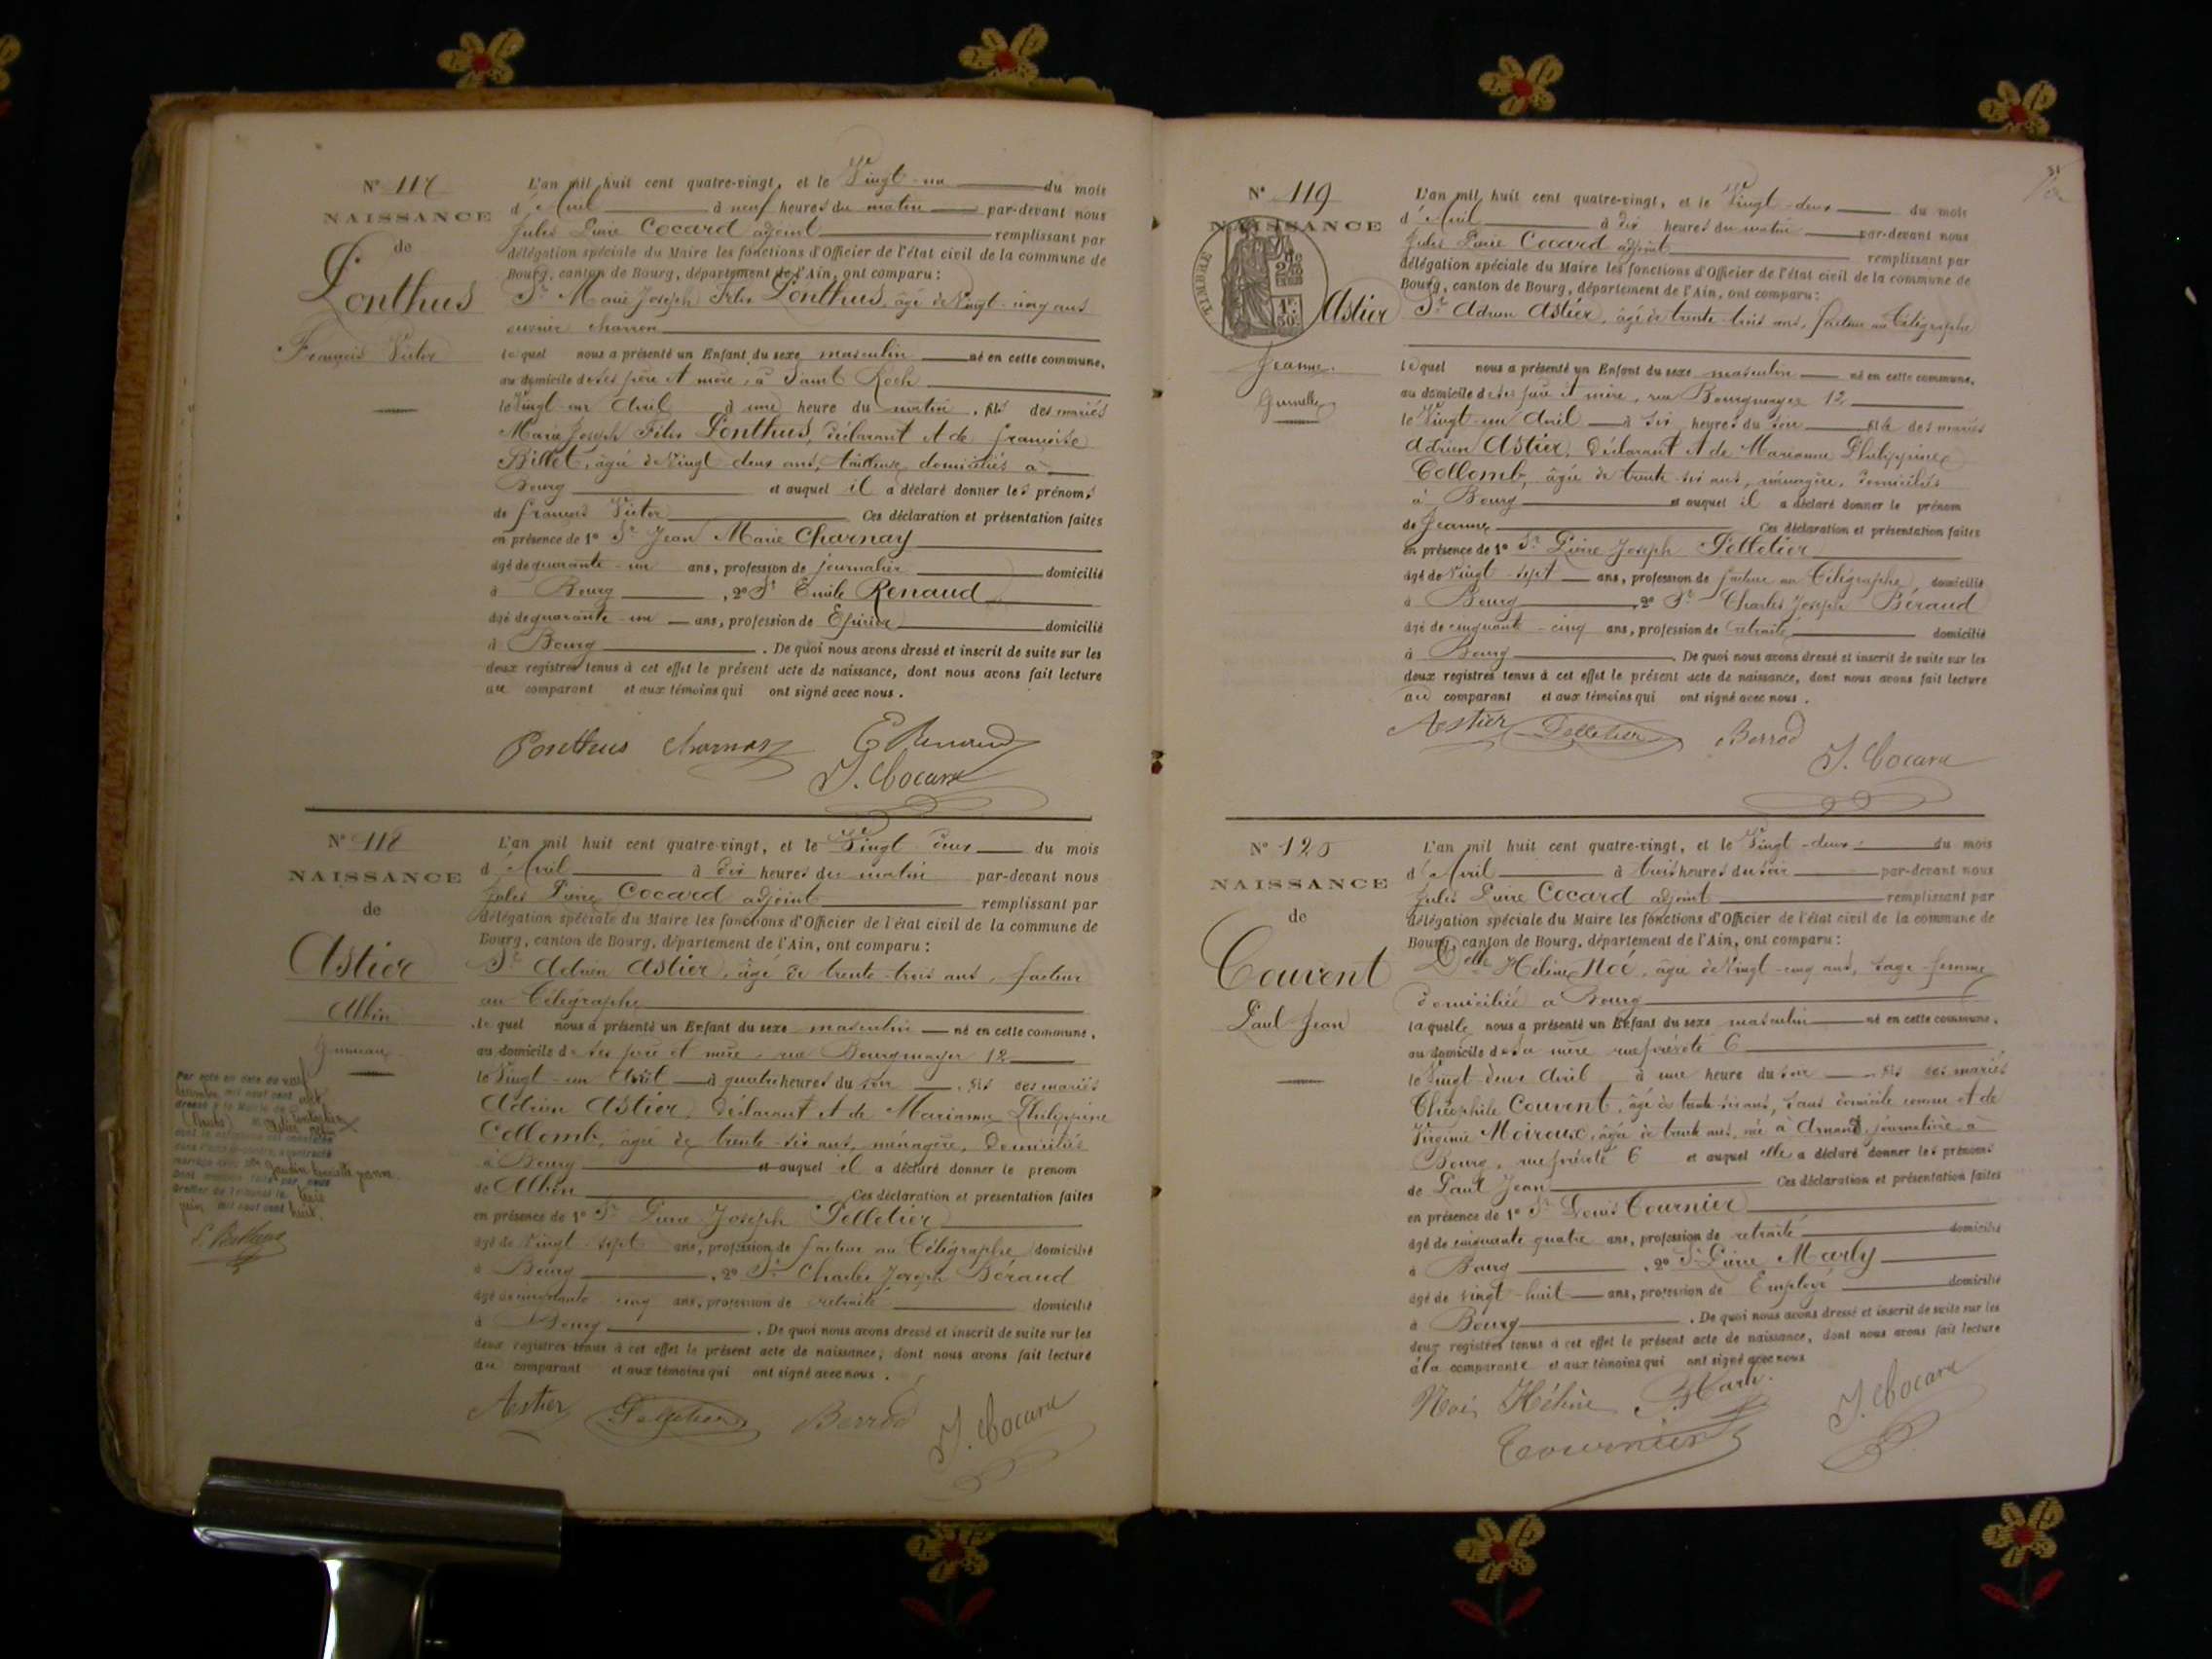 N° 117
NAISSANCE
de
Ponthus
François Victor
L'an mil huit cent quatre-vingt, et le Vingt-un du mois
d'Avril à neuf heures du matin par-devant nous
Jules Pierre Cocard adjoint remplissant par
délégation spéciale du Maire les fonctions d'Officier de l'état civil de la commune de
Bourg, canton de Bourg, département de l'Ain, ont comparu :
Sr Marie Joseph Félix Ponthus, âgé de Vingt-cinq ans
ouvrier charron
lequel nous a présenté un Enfant du sexe masculin né en cette commune,
au domicile de ses père et mère, à Saint Roch
le Vingt-un Avril à une heure du matin, fils des mariés
Marie Joseph Félix Ponthus, déclarant et de françoise
Billet, âgée de Vingt-deux ans, tailleuse, domiciliés à
Bourg et auquel il a déclaré donner les prénoms
de françois Victor Ces déclaration et présentation faites
en présence de 1° Sr Jean Marie Charnay
âgé de quarante-un ans, profession de journalier domicilié
à Bourg, 2° Sr Emile Renaud
âgé de quarante-un ans, profession de Epicier domicilié
à Bourg. De quoi nous avons dressé et inscrit de suite sur les
deux registres tenus à cet effet le présent acte de naissance, dont nous avons fait lecture
au comparant et aux témoins qui ont signé avec nous.
Ponthus Charnay E Renaud
J. Cocard
N° 118
NAISSANCE
de
Astier
Albin
Jumeau
Par acte en date du neuf
L'an mil huit cent quatre-vingt, et le Vingt-deux du mois
d'Avril à dix heures du matin par-devant nous
Jules Pierre Cocard adjoint remplissant par
délégation spéciale du Maire les fonctions d'Officier de l'état civil de la commune de
Bourg, canton de Bourg, département de l'Ain, ont comparu :
Sr Adrien Astier, âgé de trente-trois ans, facteur
au Télégraphe
lequel nous a présenté un Enfant du sexe masculin né en cette commune,
au domicile de ses père et mère, rue Bourgmayer 12
le Vingt-un Avril à quatre heures du soir, fils des mariés
Adrien Astier, Déclarant et de Marianne Philippine
Collomb, âgée de trente-six ans, ménagère, Domiciliés
à Bourg et auquel il a déclaré donner le prénom
de Albin Ces déclaration et présentation faites
en présence de 1° Sr Pierre Joseph Pelletier
âgé de Vingt-sept ans, profession de facteur au Télégraphe domicilié
à Bourg, 2° Sr Charles Joseph Béraud
âgé de cinquante-cinq ans, profession de retraité domicilié
à Bourg. De quoi nous avons dressé et inscrit de suite sur les
deux registres tenus à cet effet le présent acte de naissance, dont nous avons fait lecture
au comparant et aux témoins qui ont signé avec nous.
Astier Pelletier J. Cocard
N° 119
NAISSANCE
TIMBRE
Astier
Jeanne
Jumelle
L'an mil huit cent quatre-vingt, et le Vingt-deux du mois
d'Avril à dix heures du matin par-devant nous
Jules Pierre Cocard adjoint remplissant par
délégation spéciale du Maire les fonctions d'Officier de l'état civil de la commune de
Bourg, canton de Bourg, département de l'Ain, ont comparu :
Sr Adrien Astier, âgé de trente-trois ans, facteur au Télégraphe
lequel nous a présenté un Enfant du sexe masculin né en cette commune,
au domicile de ses père et mère, rue Bourgmayer 12
le Vingt-un Avril à six heures du soir fille des mariés
Adrien Astier, Déclarant et de Marianne Philippine
Collomb, âgée de trente-six ans, ménagère, domiciliés
à Bourg et auquel il a déclaré donner le prénom
de Jeanne Ces déclaration et présentation faites
en présence de 1° Sr Pierre Joseph Pelletier
âgé de Vingt-sept ans, profession de facteur au Télégraphe domicilié
à Bourg, 2° Sr Charles Joseph Béraud
âgé de cinquante-cinq ans, profession de retraité domicilié
à Bourg. De quoi nous avons dressé et inscrit de suite sur les
deux registres tenus à cet effet le présent acte de naissance, dont nous avons fait lecture
au comparant et aux témoins qui ont signé avec nous.
Astier Pelletier
J. Cocard
N° 120
NAISSANCE
de
Couvent
Paul Jean
L'an mil huit cent quatre-vingt, et le Vingt-deux du mois
d'Avril à trois heures du soir par-devant nous
Jules Pierre Cocard adjoint remplissant par
délégation spéciale du Maire les fonctions d'Officier de l'état civil de la commune de
Bourg, canton de Bourg, département de l'Ain, ont comparu :
Delle Hélène Noé, âgée de Vingt-cinq ans, sage-femme
domiciliée à Bourg
laquelle nous a présenté un Enfant du sexe masculin né en cette commune,
au domicile de sa mère rue prévôté 6
le Vingt-deux Avril à une heure du soir, fils des mariés
Théophile Couvent, âgé de trente-six ans, sans domicile connu et de
Virginie Moiroux, âgée de trente ans, née à journalière à
Bourg, rue prévôté 6 et auquel elle a déclaré donner les prénoms
de Paul Jean Ces déclaration et présentation faites
en présence de 1° Sr Louis Tournier
âgé de cinquante quatre ans, profession de retraité domicilié
à Bourg, 2° Sr Pierre Marly
âgé de vingt-huit ans, profession de Employé domicilié
à Bourg. De quoi nous avons dressé et inscrit de suite sur les
deux registres tenus à cet effet le présent acte de naissance, dont nous avons fait lecture
à la comparante et aux témoins qui ont signé avec nous
Noé Hélène J. Cocard
Tournier